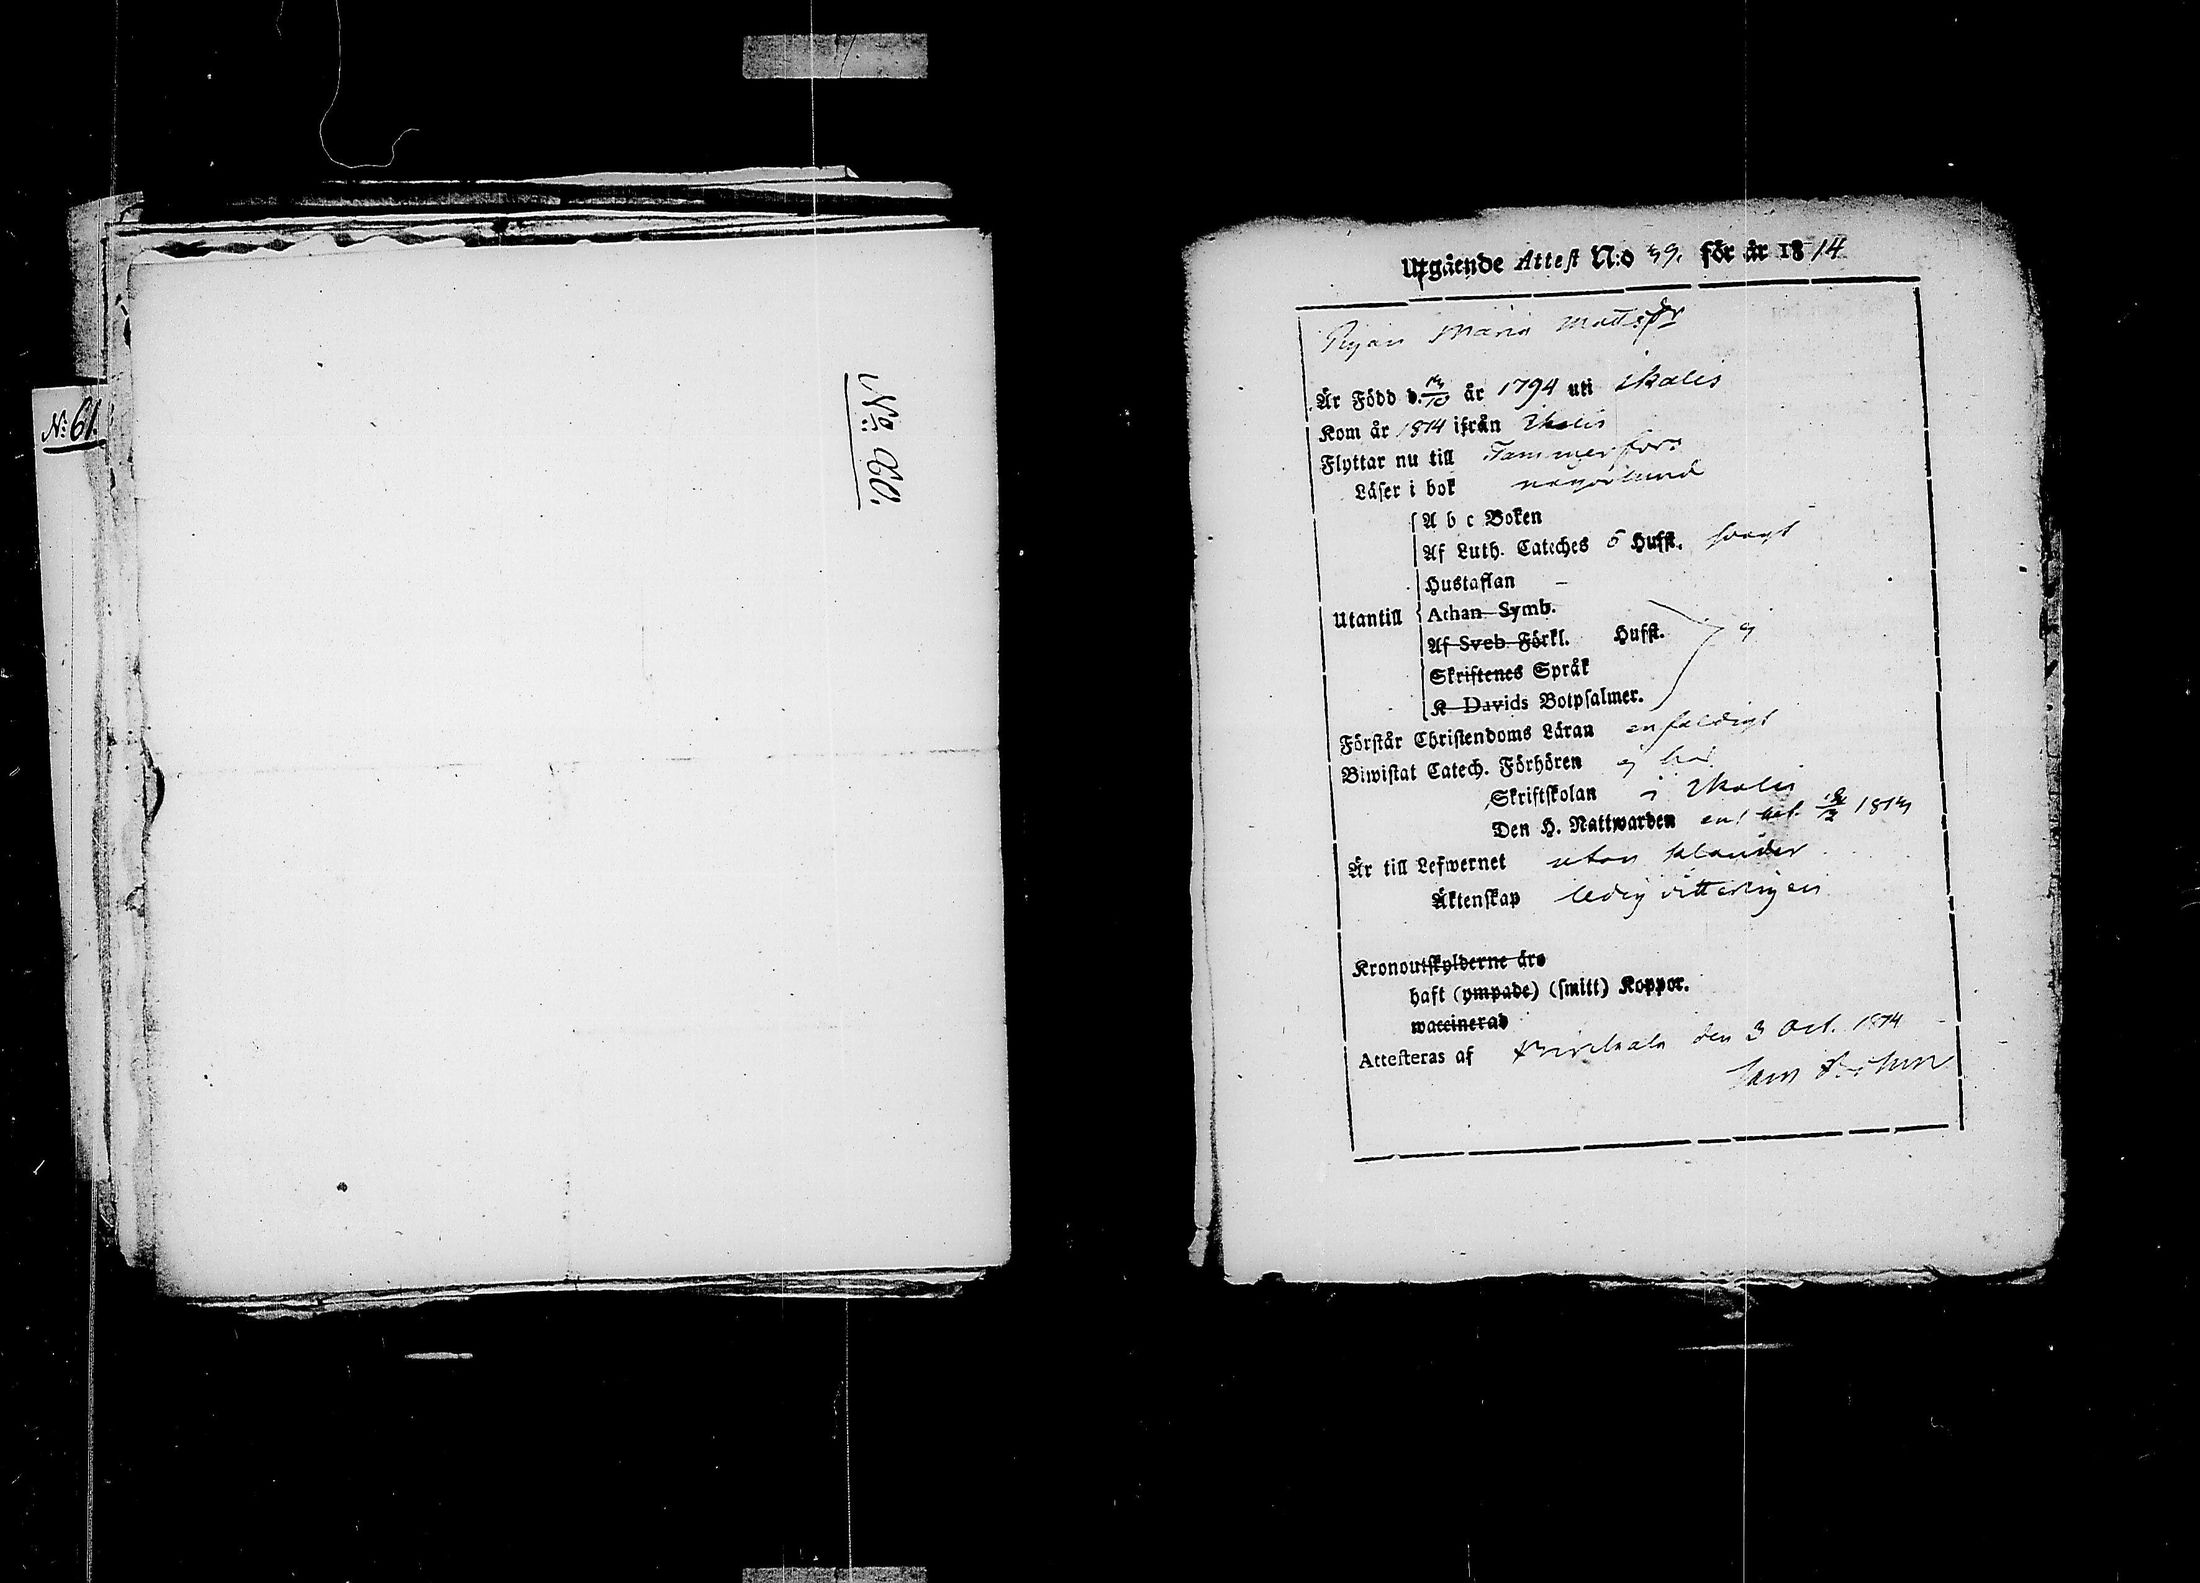 N:o 61.
N:o 60.
Utgående Attest N:o 39. för år 1814
Pigan Maria Mattsdr
Är Född d. 13/10 år 1794 uti Ikalis
Kom år 1814 ifrån Ikalis
Flyttar nu till Tammerfors
Läser i bok någorlund
A b c Boken
Af Luth. Cateches 5 Hufst. svagt
Hustaflan –
Utantill Athan Symb.
Af Sveb. Förkl. Hufst.
Skriftenes Språk
K Davids Botpsalmer.
Förstår Christendoms Läran enfaldigt
Biwistat Catech. Förhören ej här
Skriftskolan i Ikalis
Den H. Nattwarden 1813
Är till Lefwernet utan klander
Äktenskap ledig
Kronoutskylderne äro
haft (ympade) (smitt) Koppor.
waccinerad
Attesteras af Birckala den 3 Oct. 1814
Sam